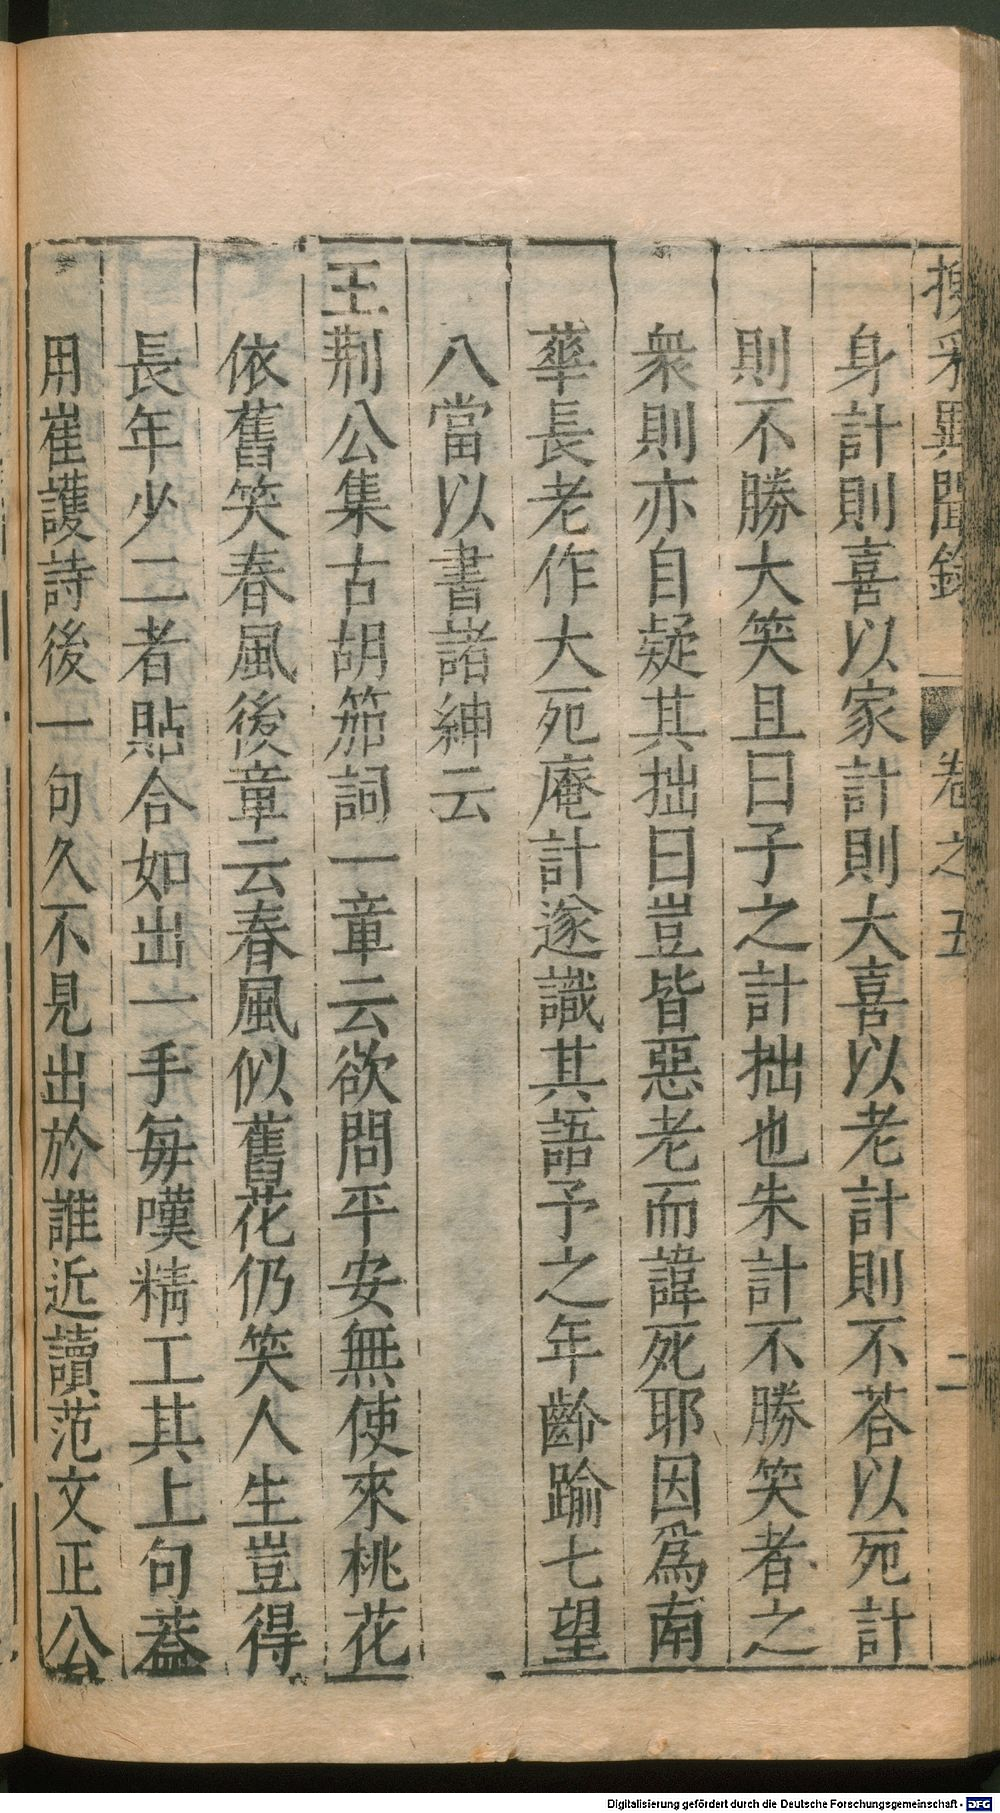 採異聞錄 卷之五 二
身計則喜以家計則大喜以老計則不荅以死計
則不勝大笑且曰子之計拙也朱計不勝笑者之
衆則亦自疑其拙曰豈皆惡老而諱死耶因爲南
華長老作大死庵計遂識其語予之年齡踰七望
八當以書諸紳云
王荆公集古胡笳詞一章云欲問平安無使來桃花
依舊笑春風後章云春風似舊花仍笑人生豈得
長年少二者貼合如出一手每嘆精工其上句蓋
用崔護詩後一句久不見出於誰近讀范文正公
Digitalisierung gefördert durch die Deutsche Forschungsgemeinschaft - DFG